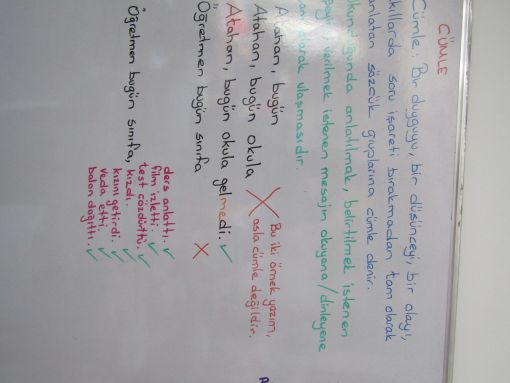 CÜMLE
Cümle: Bir duyguyu, bir düşünceyi, bir olayı,
akıllarda soru işareti bırakmadan tam olarak
anlatan sözcük gruplarına cümle denir.
okunduğunda anlatılmak, belirtilmek istenen
veya verilmek istenen mesajın okuyana/dinleyene
tam olarak ulaşmasıdır.
Atahan, bugün
Atahan, bugün okula
Bu iki örnek yazım,
asla cümle değildir.
Atahan, bugün okula gelmedi. ✓
Öğretmen bugün sınıfa X
Öğretmen bugün sınıfa,
ders anlattı. ✓
film izletti. ✓
test çözdürttü. ✓
kızdı. ✓
kızını getirdi. ✓
veda etti. ✓
balon dağıttı. ✓